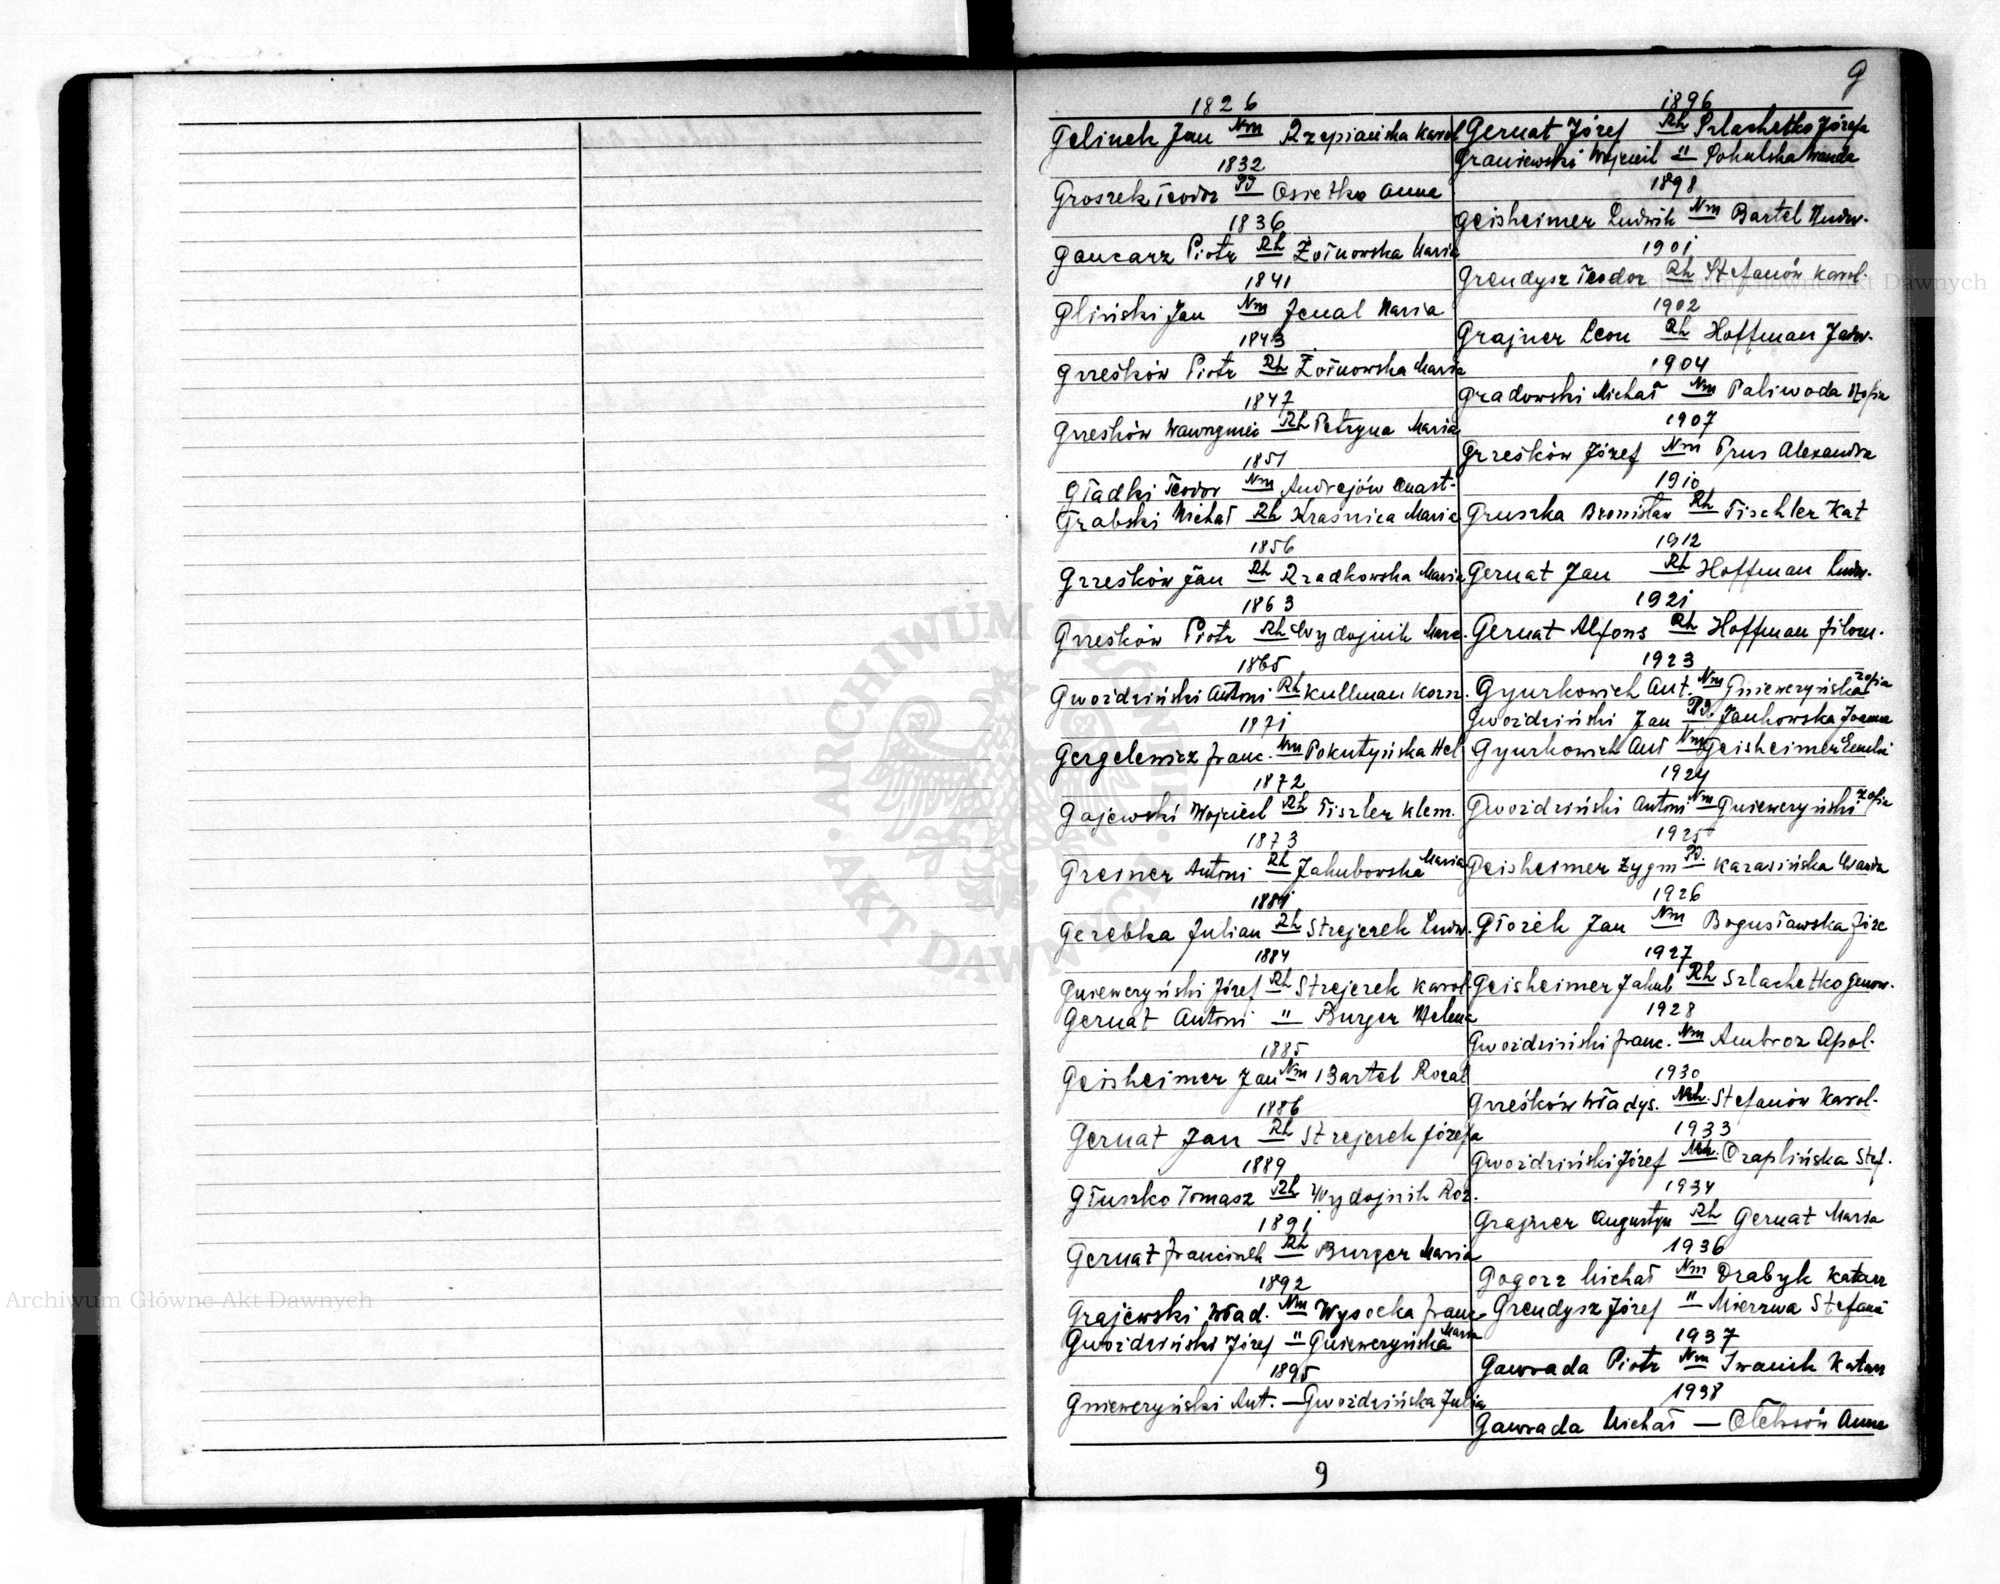 G
1826
Gelinek Jan Nm Rzepiańska Karol
1832
Groszek Teodor PJ Osietko Anna
1836
Gancarz Piotr Rh Żołnowska Maria
1841
Gliński Jan Nm Jenal Maria
1843
Grześków Piotr Rh Żołnowska Maria
1847
Grześków Wawrzyniec Rh Petryna Maria
1851
Gładki Teodor Nm Andrejów Anast.
Grabski Michał Rh Kraśnica Maria
1856
Grześków Jan Rh Rzadkowska Maria
1863
Grześków Piotr Rh Wydojnik
1865
Gwoździński Antoni Rh Kullman
1871
Gergelewicz Franc. Nm Pokutyńska Hel
1872
Gajewski Wojciech Rh Tiszler Klem.
1873
Greiner Antoni Rh Jakubowska Maria
1881
Gerebka Julian Rh Strejczek Ludw.
1884
Gniewczyński Józef Rh Strejczek Karol
Gernat Antoni " Burger Helena
1885
Geisheimer Jan Nm Bartel Rozal
1886
Gernat Jan Rh Strejczek Józefa
1889
Głuszko Tomasz Rh Wydojnik Roz.
1891
Gernat Franciszek Rh Burger Maria
1892
Grajewski Wład. Nm Wysocka Franc
Gwoździński Józef " Gniewczyńska Maria
1895
Gniewczyński Ant. — Gwoździńska Julia
1896
Gernat Józef Rh Szlachetko Józefa
Graniewski Wojciech " Wanda
1898
Geisheimer Ludwik Nm Bartel Ludw.
1901
Grendysz Teodor Rh Stefanów Karol.
1902
Grajner Leon Rh Hoffman Jadw.
1904
Gradowski Michał Nm Paliwoda Zofia
1907
Grześków Józef Nm Prus Alexandra
1910
Gruszka Bronisław Rh Tischler Kat
1912
Gernat Jan Rh Hoffman Ludw.
1921
Gernat Alfons Rh Hoffman Filom.
1923
Gyurkowich Ant. Nm Gniewczyńska Zofia
Gwoździński Jan PJ. Jankowska Joanna
Gyurkowich Ant Nm Geisheimer Emilia
1924
Gwoździński Antoni Nm Gniewczyński Zofia
1925
Geisheimer Zygm PJ. Karasińska Wanda
1926
Głożek Jan Nm Bogusławska Józe
1927
Geisheimer Jakub Rh Szlachetko Genow.
1928
Gwoździński Franc. Nm Ambroz Apol.
1930
Grześków Władys. Mh. Stefanów Karol.
1933
Gwoździński Józef Mh. Czaplińska Stef.
1934
Grajner Augustyn Rh Gernat Maria
1936
Gogorz Michał Nm Drabyk Katarz
Grendysz Józef " Mierzwa Stefania
1937
Gawrada Piotr Nm Iwanik Katarz
1938
Gawrada Michał — Oleksów Anna
9
ARCHIWUM GŁÓWNE · AKT DAWNYCH ·
Archiwum Główne Akt Dawnych
Archiwum Główne Akt Dawnych